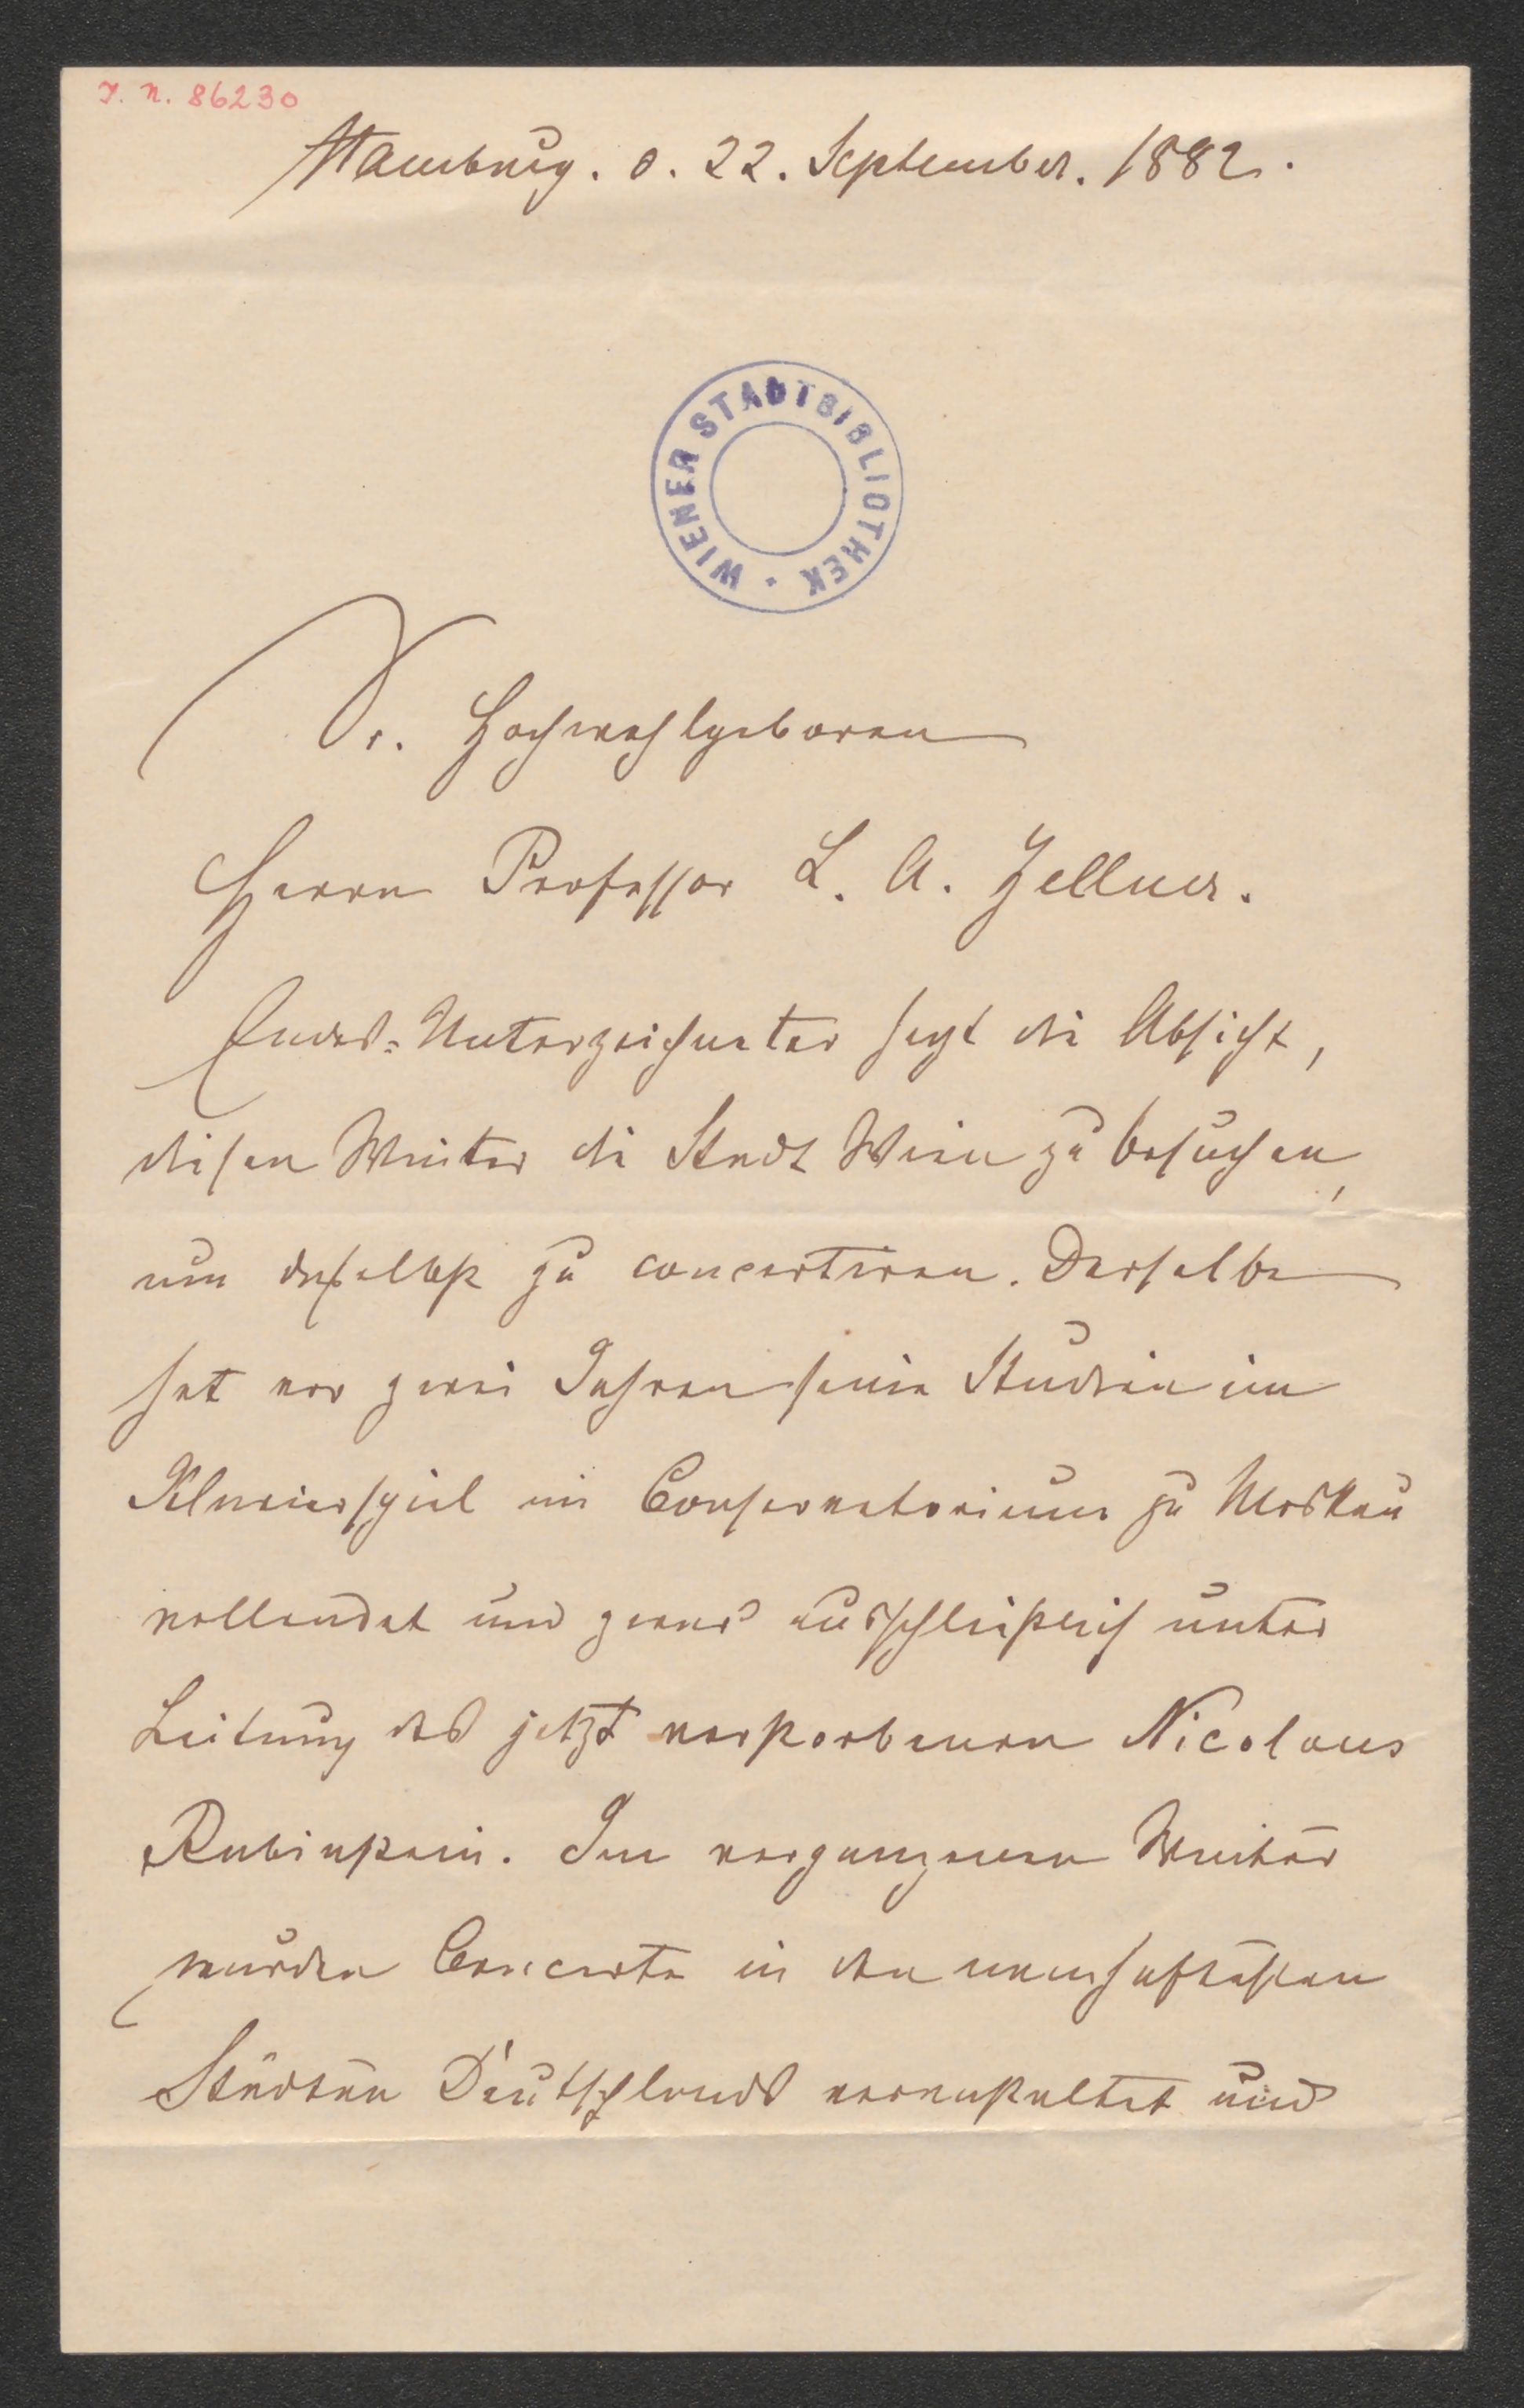 J. N. 86230
Hamburg. d. 22. September. 1882.
WIENER STADTBIBLIOTHEK
Sr. Hochwohlgeboren
Herrn Professor L. A. Zellner.
Endes-Unterzeichneter hegt die Absicht,
diesen Winter die Stadt Wien zu besuchen,
um daselbst zu concertiren. Derselbe
hat vor zwei Jahren seine Studien im
Klavierspiel im Conservatorium zu Moskau
vollendet und zwar ausschließlich unter
Leitung des jetzt verstorbenen Nicolaus
Rubinstein. Im vergangenen Winter
wurden Concerte in den namhaftesten
Städten Deutschlands veranstaltet und